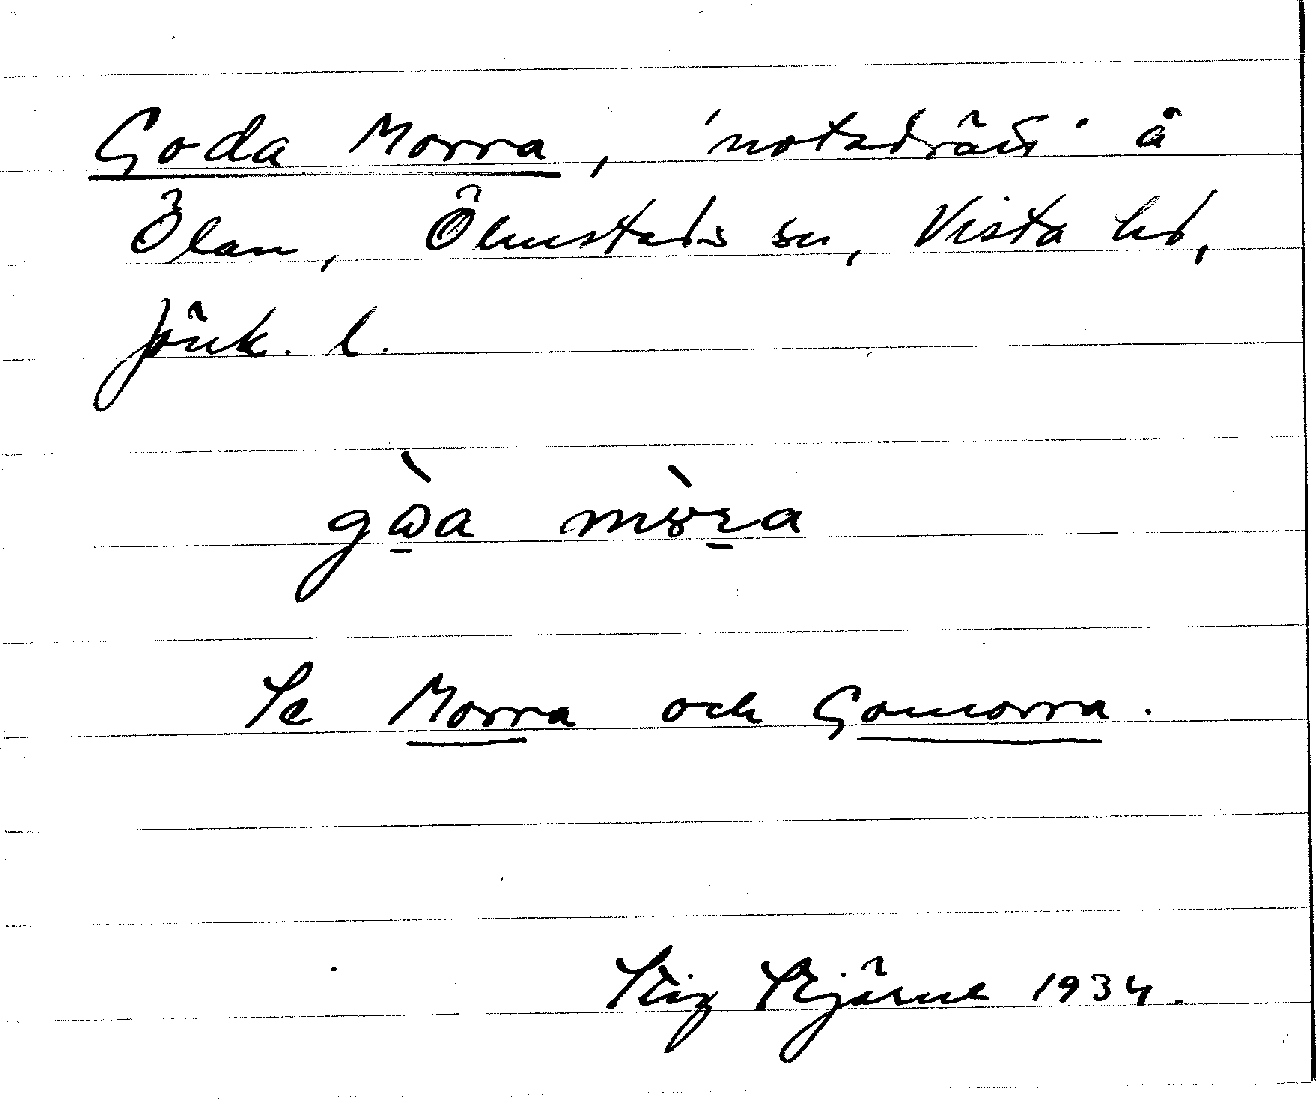 Goda Morra, 'notadrätt' å
Ölan, Ölmstads sn, Vista hd,
Jönk. l.
gὼ̱a mòṟa
Se Morra och Gomorra.
Stig Stjärne 1934.